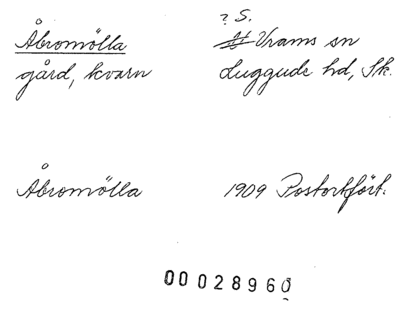 ? S.
Åbromölla Vrams sn
gård, kvarn Luggude hd, Sk.
Åbromölla 1909 Postortfört.
00028960